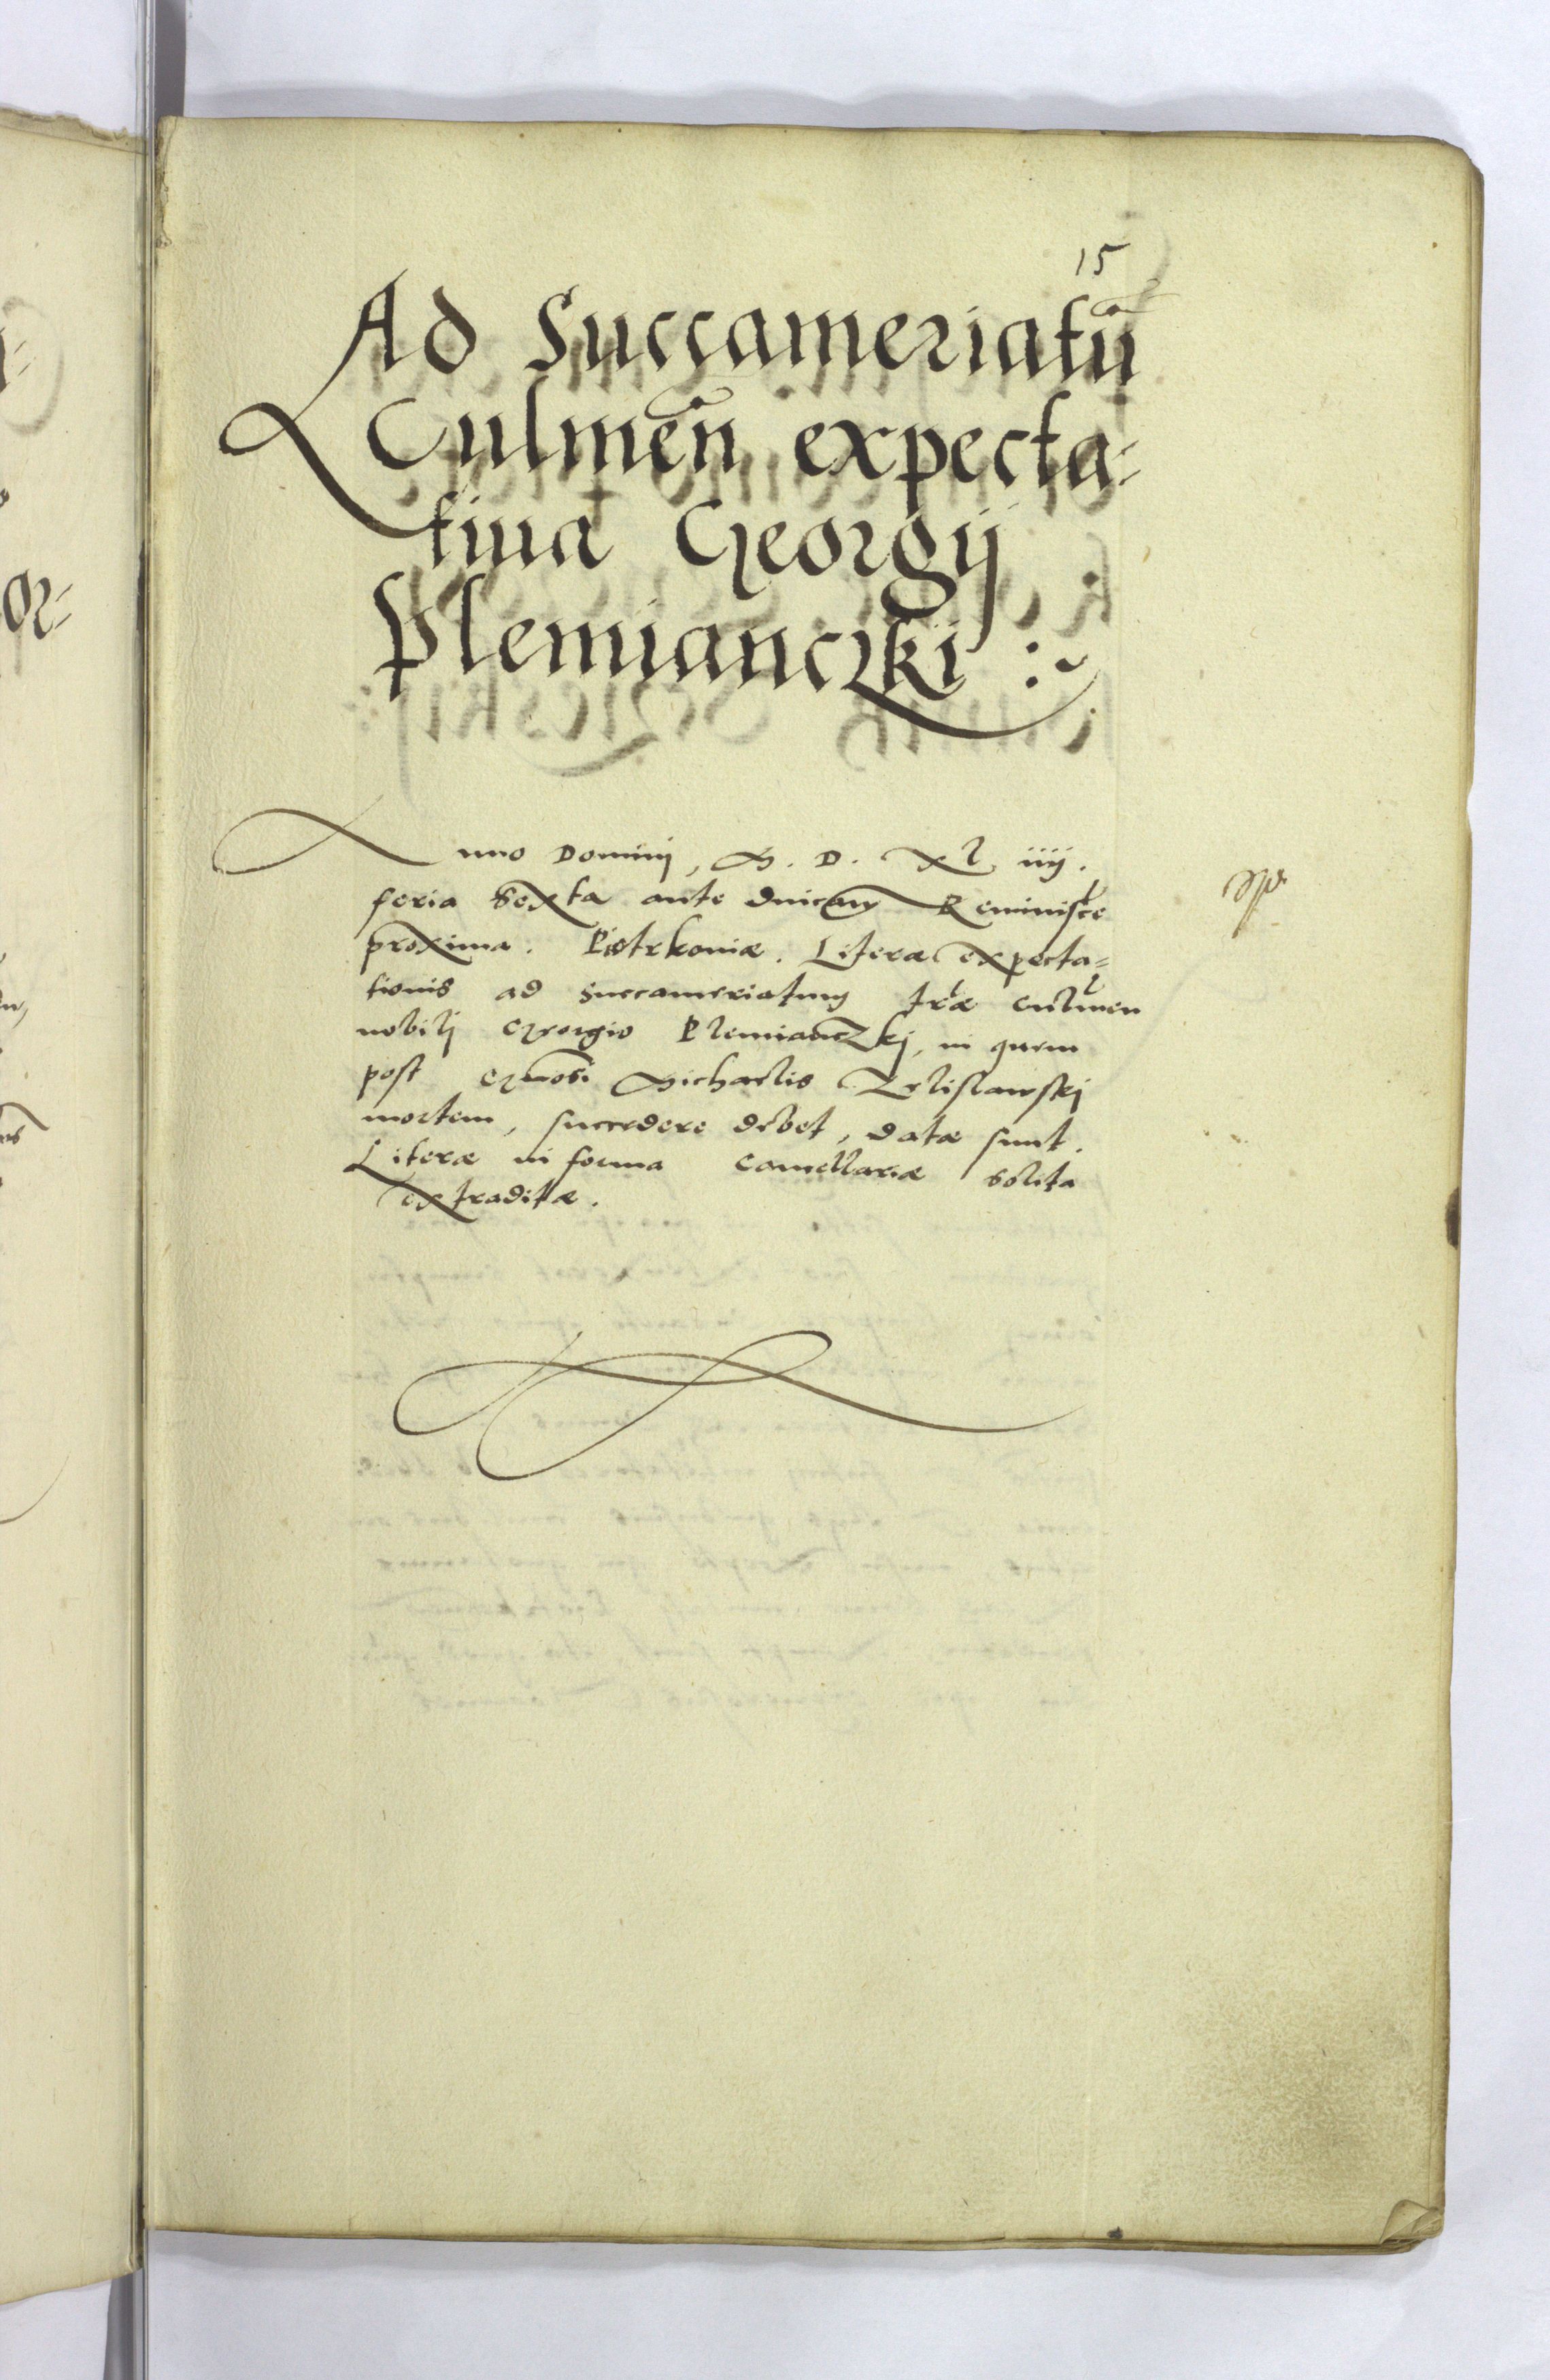 15
Ad Succameriatū
Culmen̄ expecta⸗
tiua Georgij
Plemianczki :~
Anno Domini, M. D. XL iiij.
feria Sexta ante dnicam Reminisce͛
proxima. Piotrkouiæ. Literæ expecta⸗
tionis ad Succameriatum tr͛æ Culmen͛
nobilj Georgio Plemianczkj, in quem
post G͞nosi Michaelis Zelislawskj
mortem, succedere debet, datæ sunt.
Literæ in forma Cancellariæ solita
extraditæ.